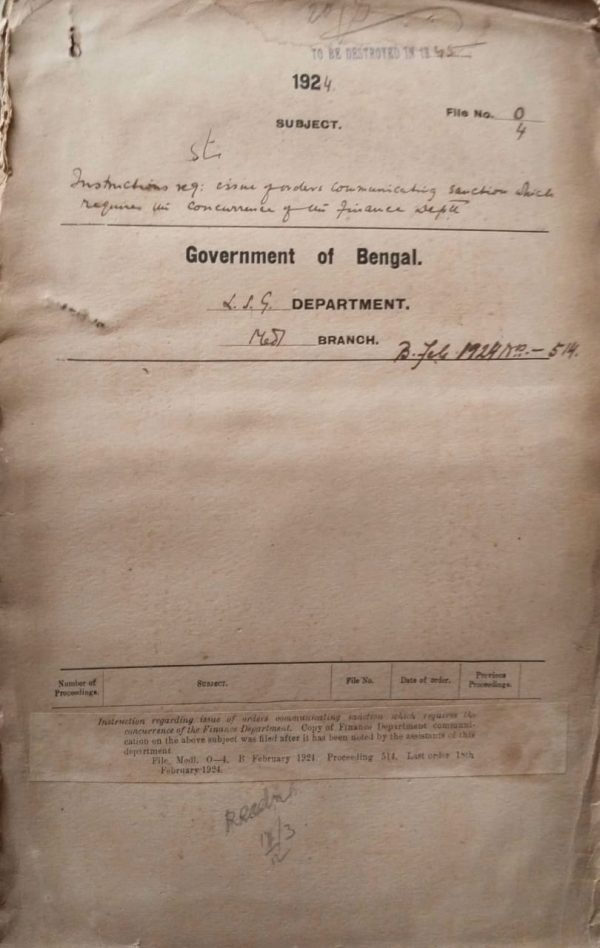 TO BE DESTROYED IN 19
1924
File No. O/4
SUBJECT.
Instructions reg: issue of orders communicating sanction which
requires the concurrence of the Finance Deptt
Government of Bengal.
L. S. G. DEPARTMENT.
Medl BRANCH.
B. Feb 1924 No. – 514.
Number of Proceedings. Subject. File No. Date of order. Previous Proceedings.
Instruction regarding issue of orders communicating sanction which requires the
concurrence of the Finance Department. Copy of Finance Department communi-
cation on the above subject was filed after it has been noted by the assistants of this
department
File, Medl. O—4, B February 1924. Proceeding 514. Last order 18th
February 1924.